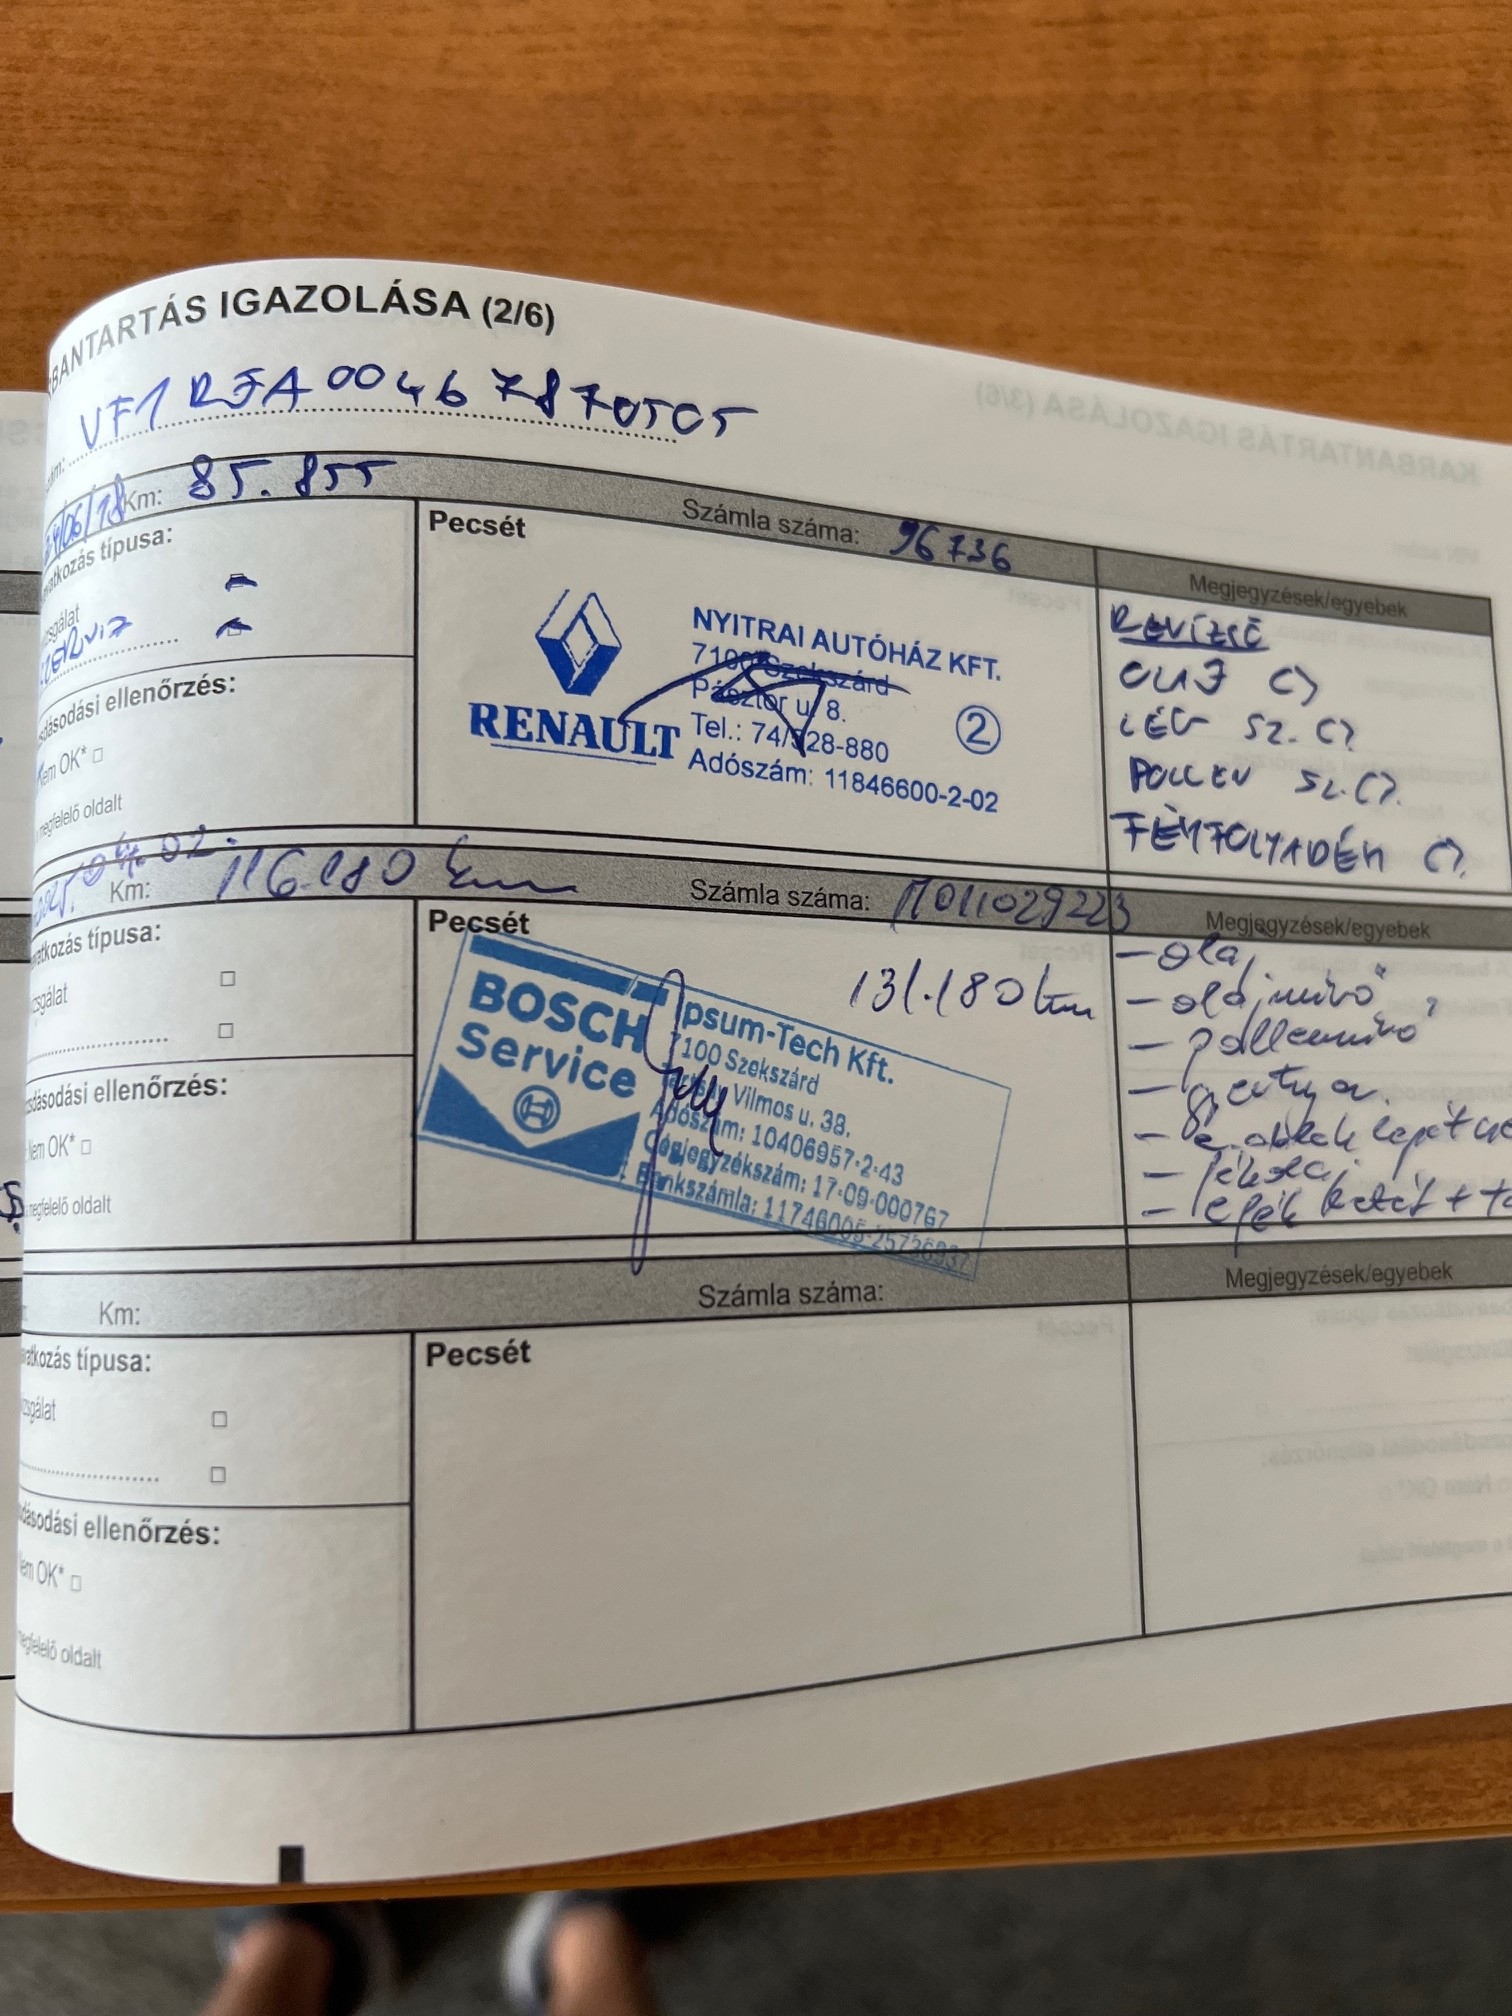 BANTARTÁS IGAZOLÁSA (2/6)
VF1 RJA0046 7870505
/06/18 Km: 85.855 Számla száma: 96736 Megjegyzések/egyebek
atkozás típusa:
zsgálat
SZERVIZ
dásodási ellenőrzés:
Nem OK* □
megfelelő oldalt
Pecsét
RENAULT
NYITRAI AUTÓHÁZ KFT.
7100 Szekszárd
Pásztor u. 8.
Tel.: 74/528-880
Adószám: 11846600-2-02
2
REVÍZIÓ
OLAJ CS
LÉG SZ. CS
POLLEN SZ. CS.
FÉKFOLYADÉK CS.
04.02. Km: 116.180 km Számla száma: Megjegyzések/egyebek
atkozás típusa:
zsgálat
dásodási ellenőrzés:
Nem OK* □
megfelelő oldalt
Pecsét
131.180 km
BOSCH
Service
Ipsum-Tech Kft.
7100 Szekszárd
Vilmos u. 38.
Adószám: 10406957-2-43
Cégjegyzékszám: 17-09-000767
Bankszámla:
- olaj
- olajszűrő
- pollenszűrő
- gyertya
Km: Számla száma: Megjegyzések/egyebek
atkozás típusa:
zsgálat
dásodási ellenőrzés:
Nem OK* □
megfelelő oldalt
Pecsét
KARBANTARTÁS IGAZOLÁSA (3/6)